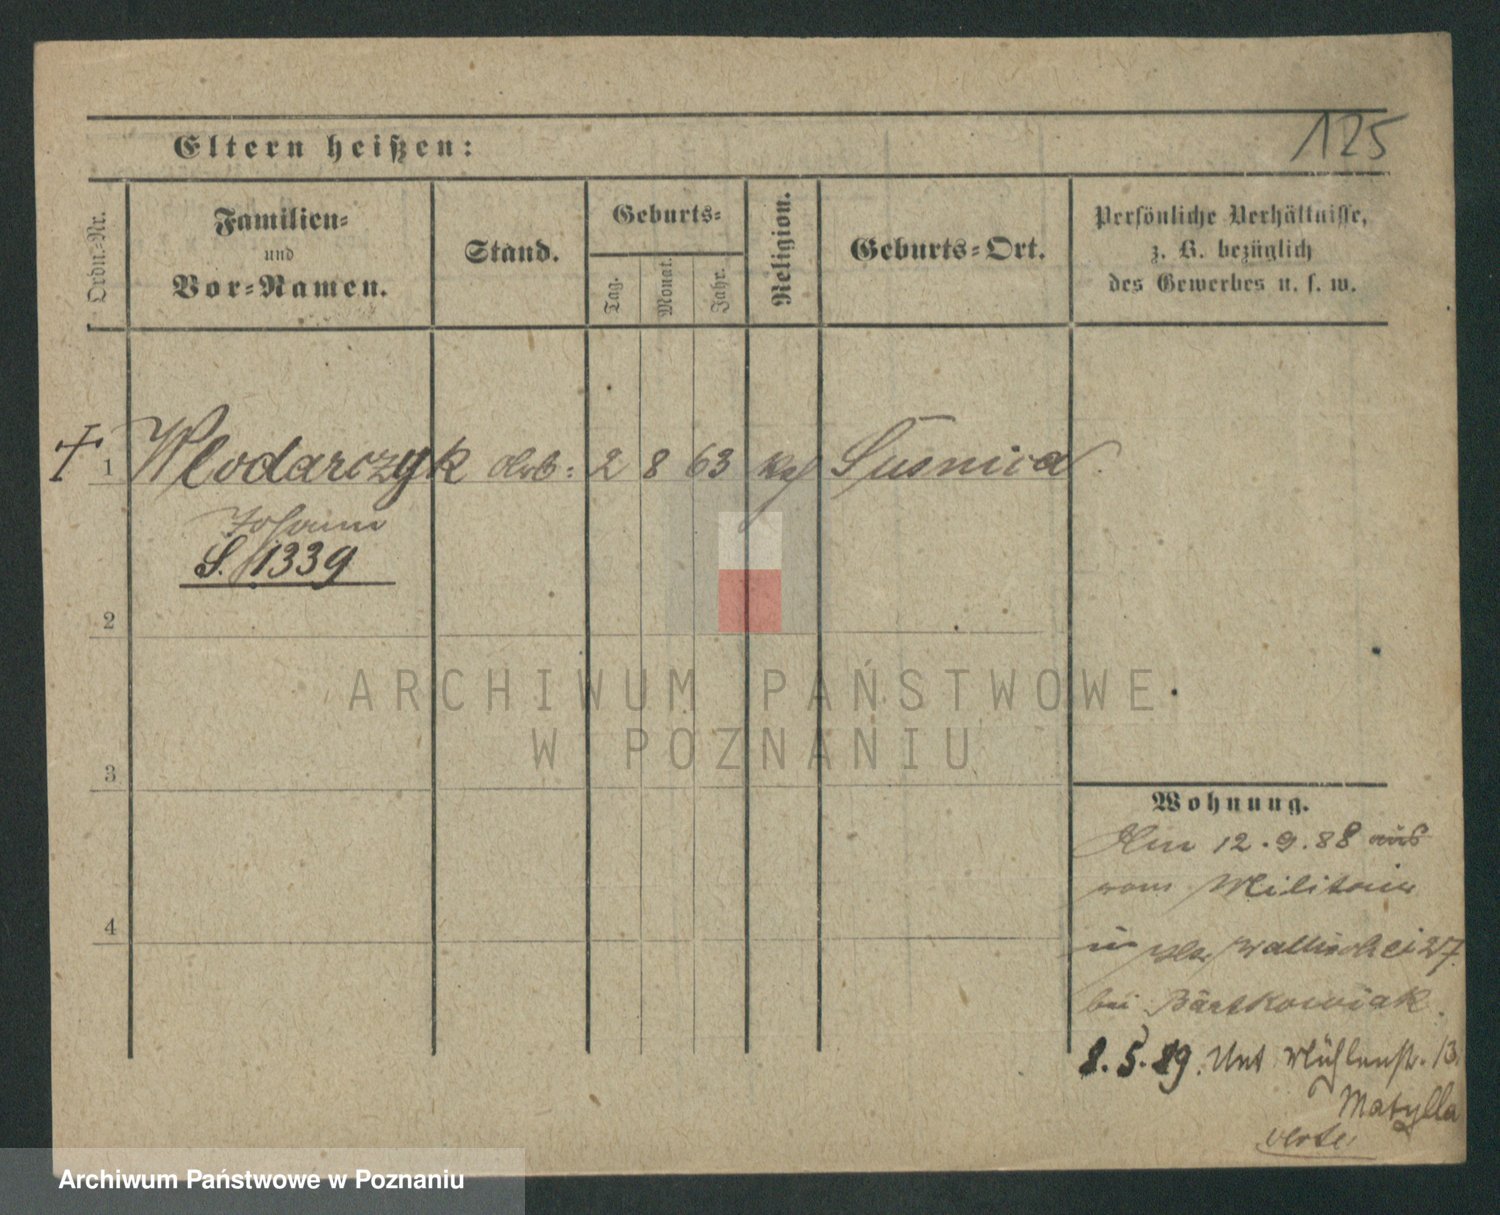 125
Eltern heißen:
Ordn.-Nr.
Familien-
und
Vor-Namen.
Stand.
Geburts-
Tag.
Monat.
Jahr.
Religion.
Geburts-Ort.
Persönliche Verhältnisse,
z. B. bezüglich
des Gewerbes u. s. w.
† 1 Wlodarczyk Arb: 2 8 63 Susnica
Johann
S. 1339
2
3
4
ARCHIWUM PAŃSTWOWE
W POZNANIU
Wohnung.
Am 12.9.88 aus
vom Militair
in Wallischei 27.
bei Bartkowiak.
8.5.89. Unt Mühlenstr. 13.
Matylla
verte
Archiwum Państwowe w Poznaniu